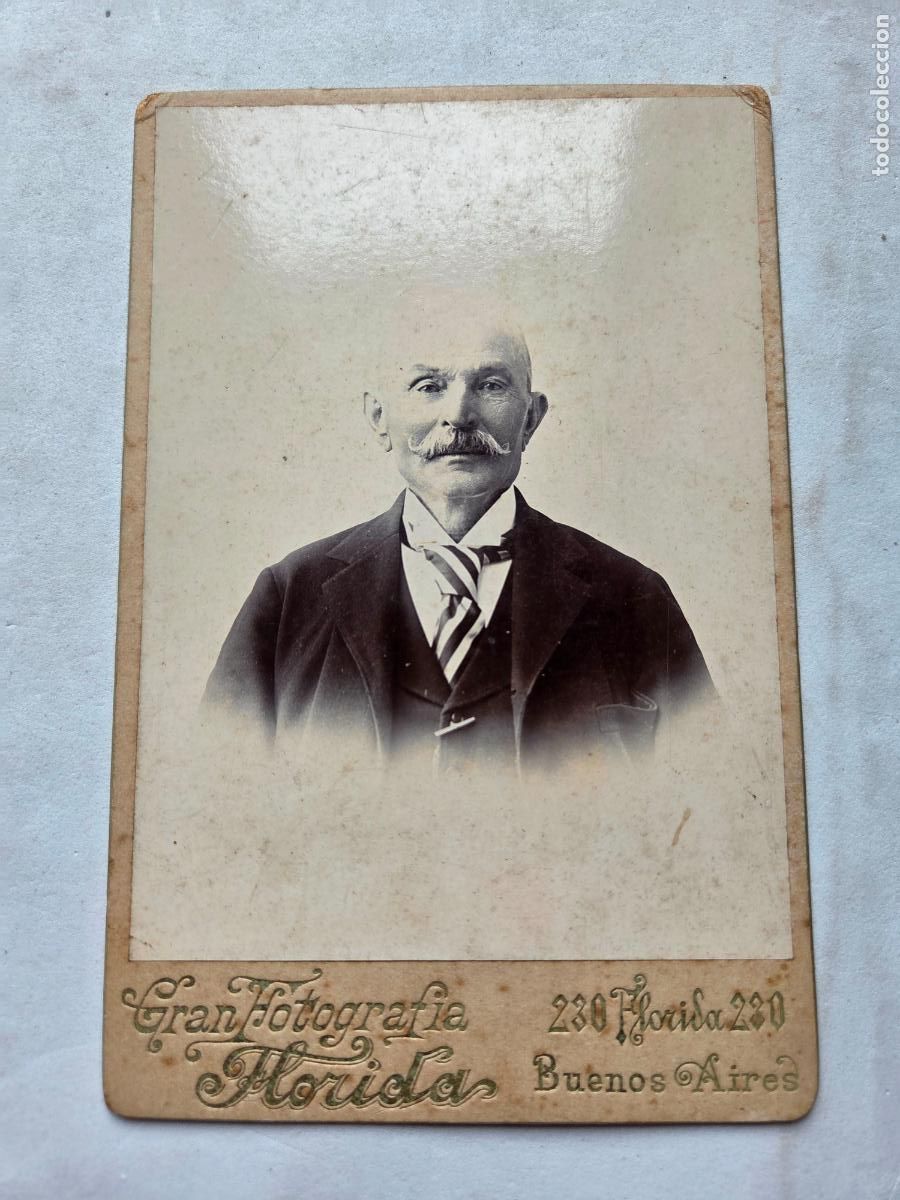 todocoleccion
Gran Fotografia
Florida
230 Florida 230
Buenos Aires